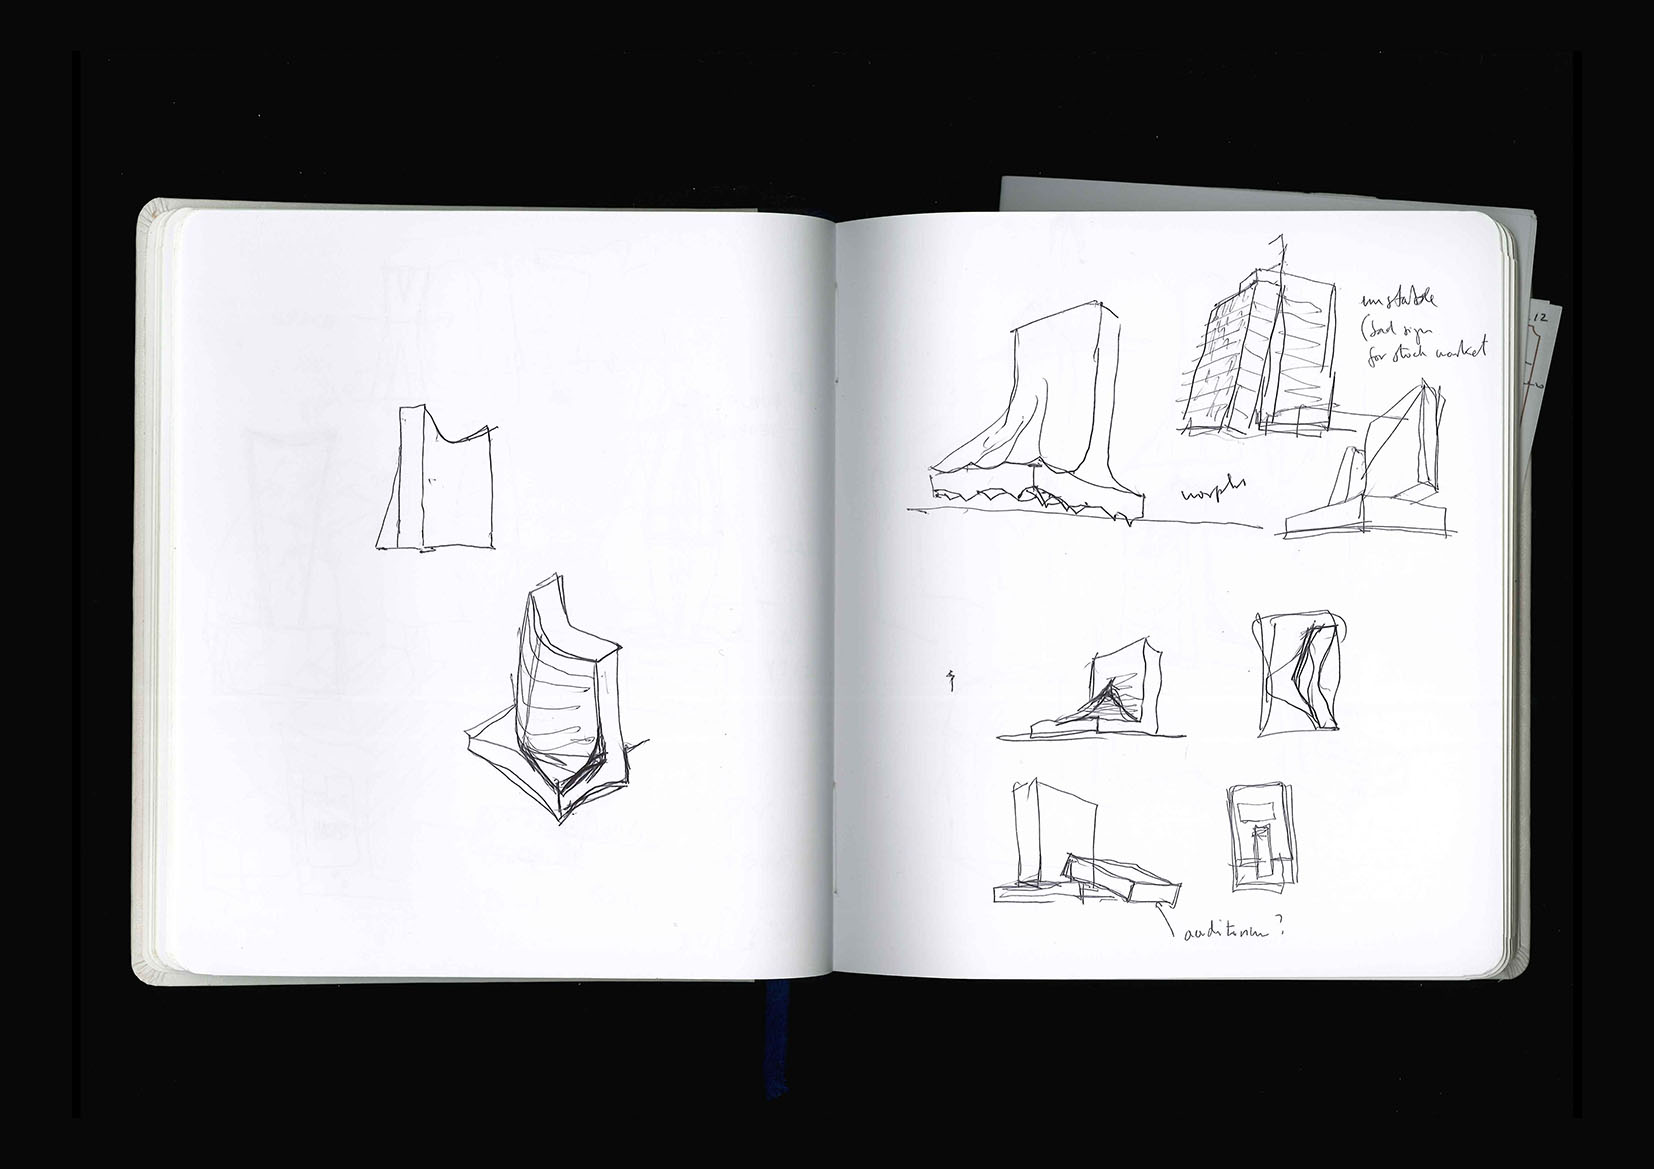 unstable
(bad sign
for stock market
.12
morphs
auditorium?